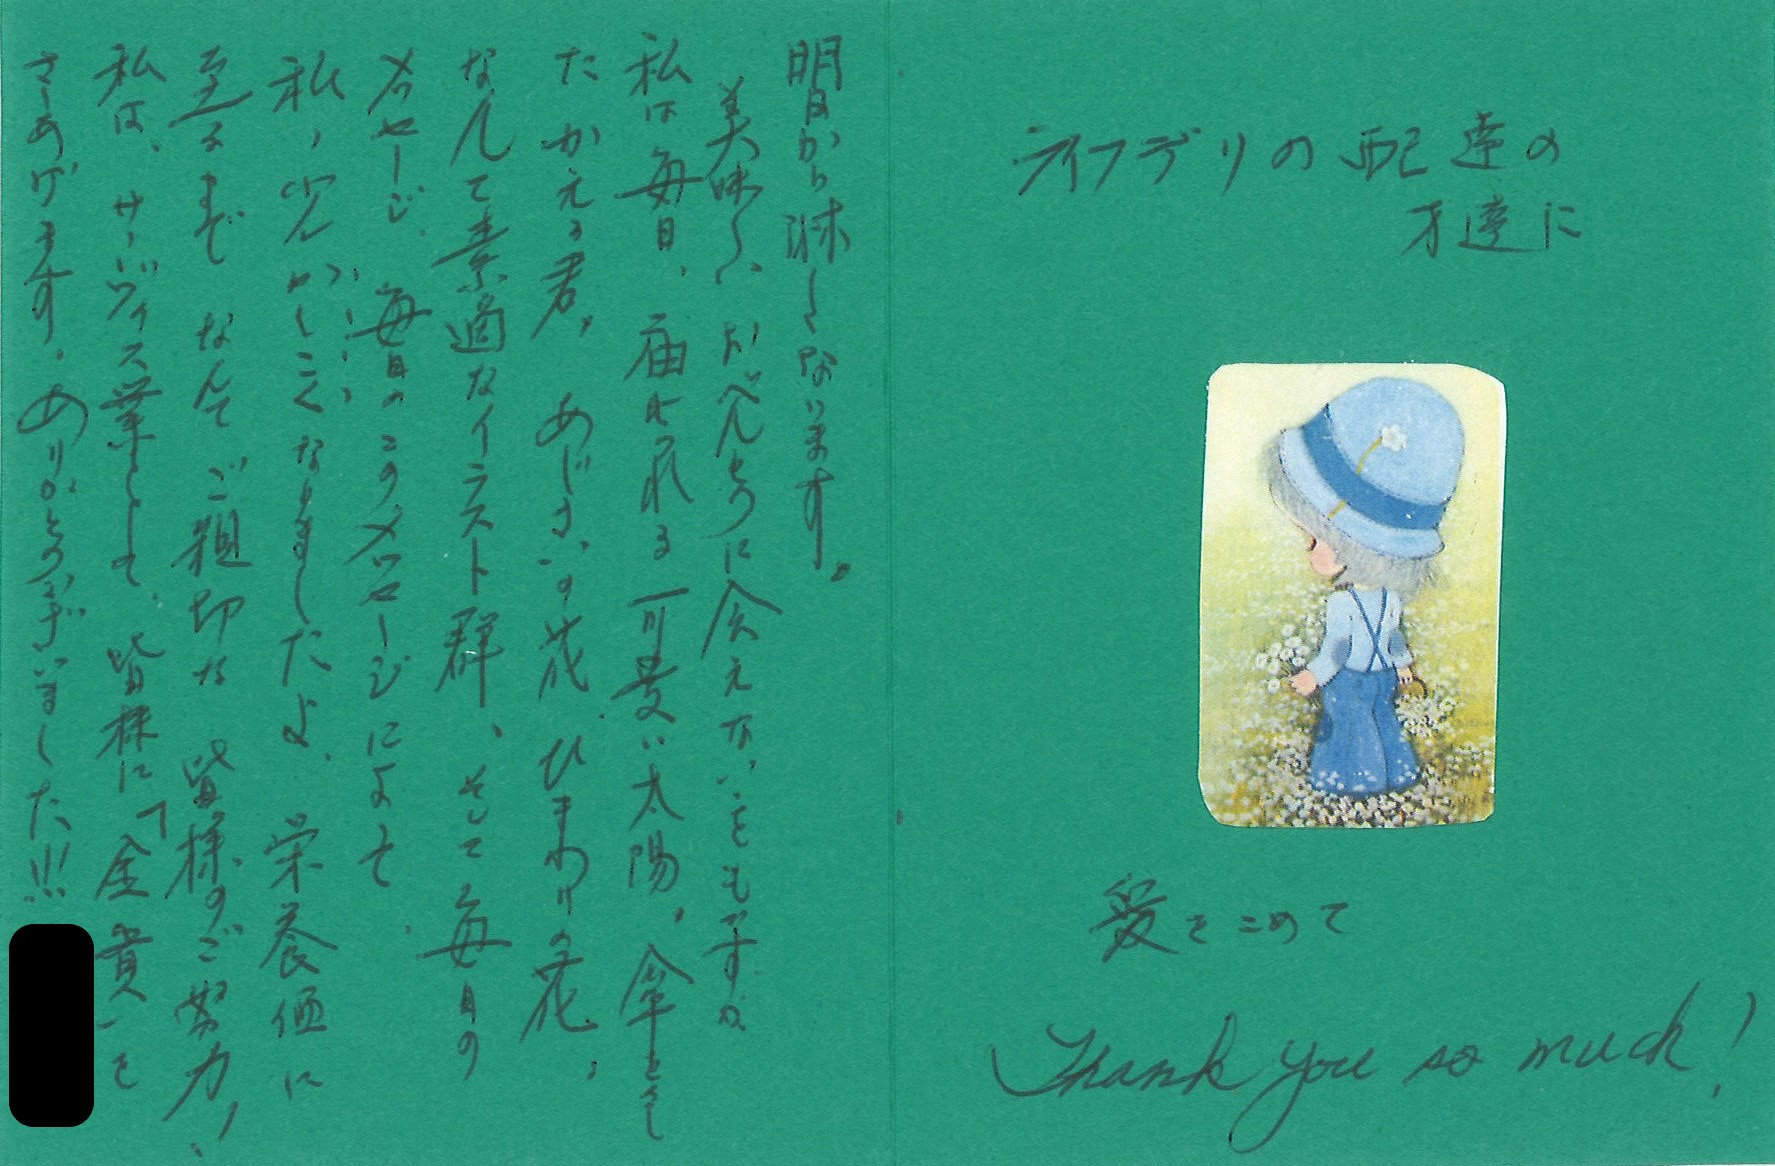 ライフデリの配達の
方達に
愛をこめて
Thank you so much!
明日から淋しくなります。
美味しいおべんとうに会えないをもですが
私は毎日、届けられる可愛い太陽、傘をさし
たかえる君、あじさいの花、ひまわりの花、
なんて素適なイラスト群、そして毎日の
メッセージ、毎日のこのメッセージによって
私、少しかしこくなりましたよ、栄養価に
至るまで なんて ご親切な 皆様のご努力、
私は、サーヴィス業として、皆様に「金賞」を
さしあげます。ありがとうございました!!!